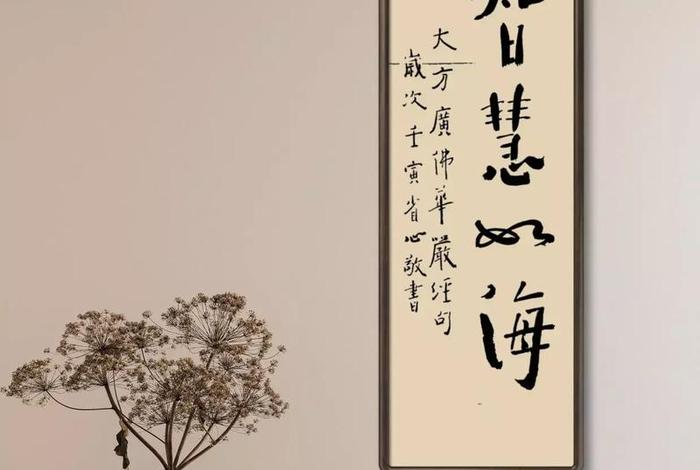 智慧如海
大方廣佛華嚴經句
歲次壬寅省心敬書